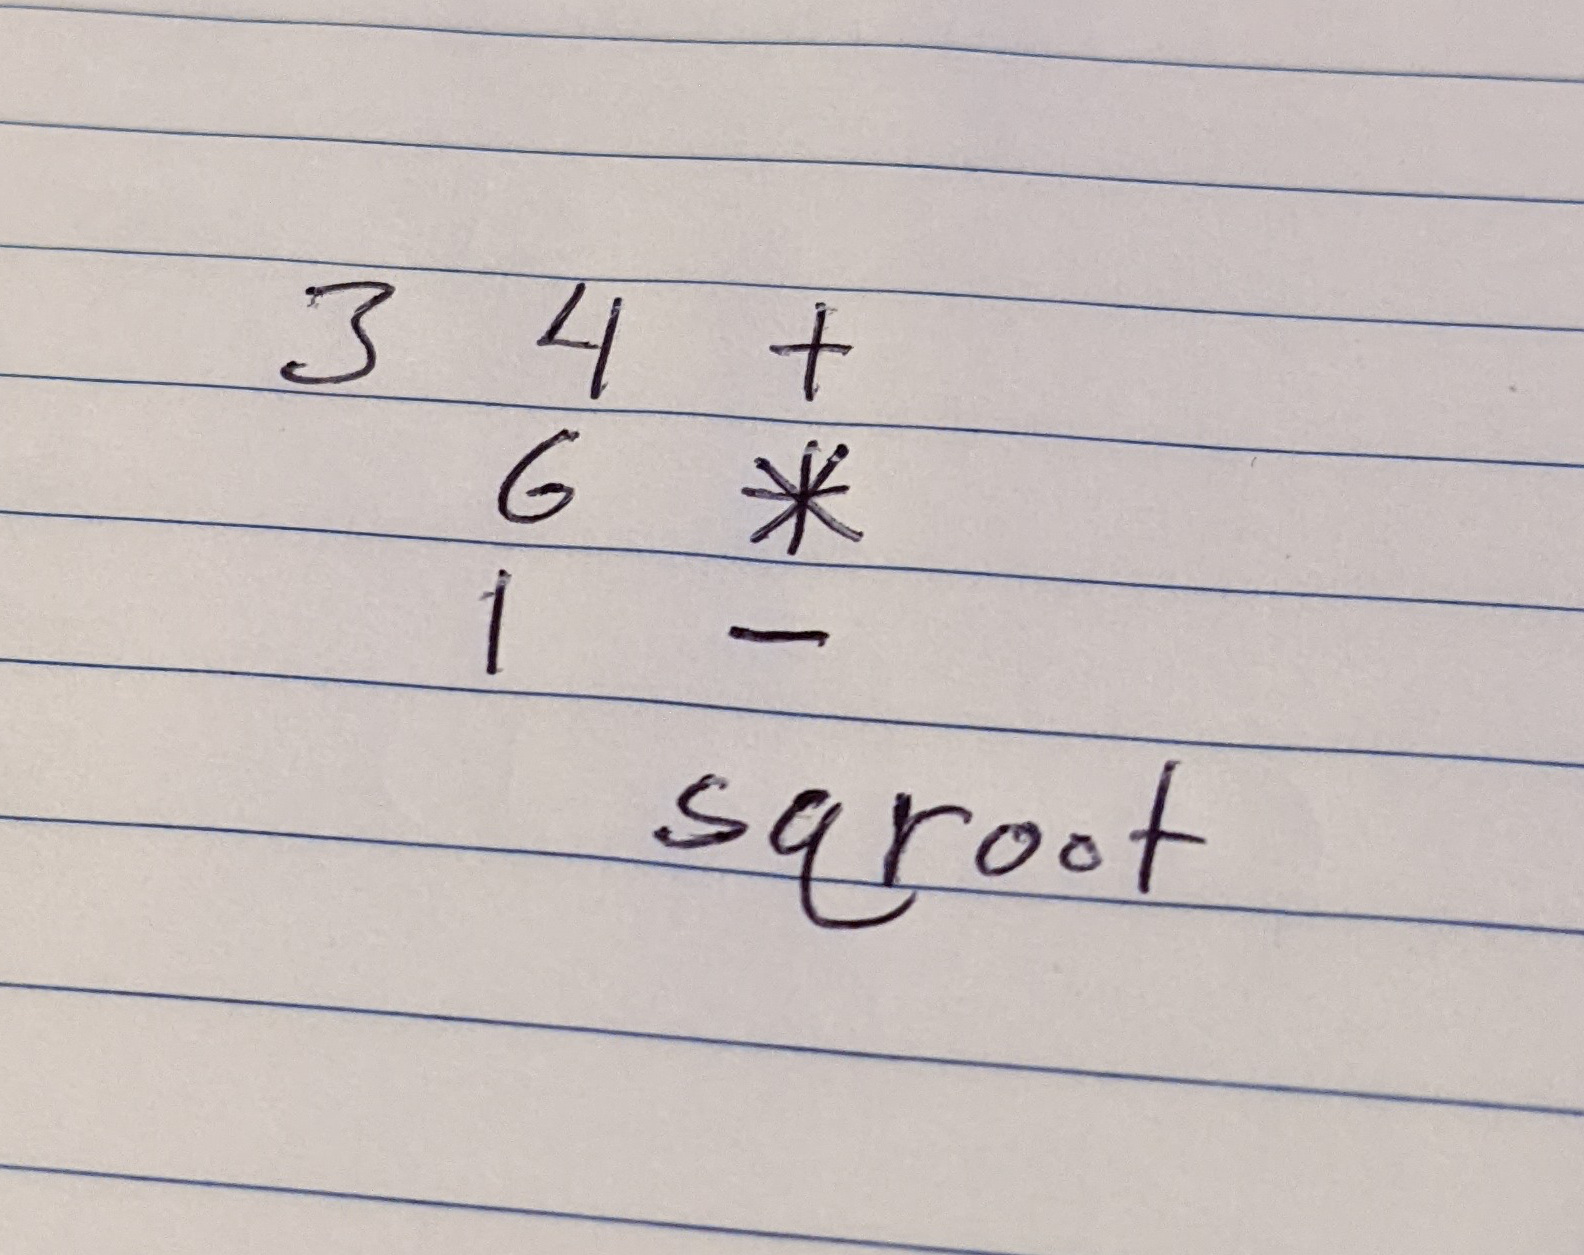 3 4 +
6 *
1 -
sqroot